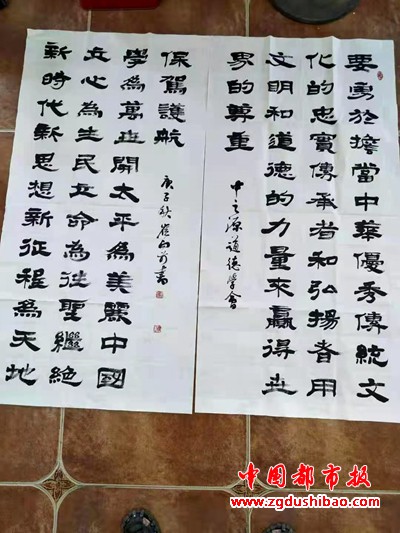 要勇於擔當中華優秀傳統文
化的忠實傳承者和弘揚者用
文明和道德的力量來贏得世
界的尊重
中之源道德學會
新時代新思想新征程為天地
立心為生民立命為往聖繼絕
學為萬世開太平為美麗中國
保駕護航
庚子秋崔向前書
中国都市报
www.zgdushibao.com